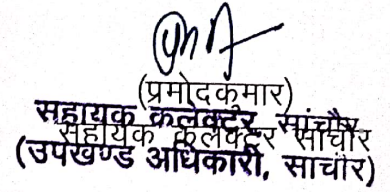 (प्रमोदकुमार)
सहायक कलेक्टर, सांचौर
सहायक कलेक्टर सांचौर
(उपखण्ड अधिकारी, साचोर)